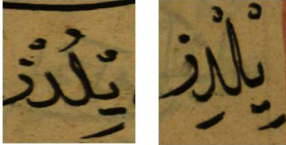 يِلْدِز يِلْدُز